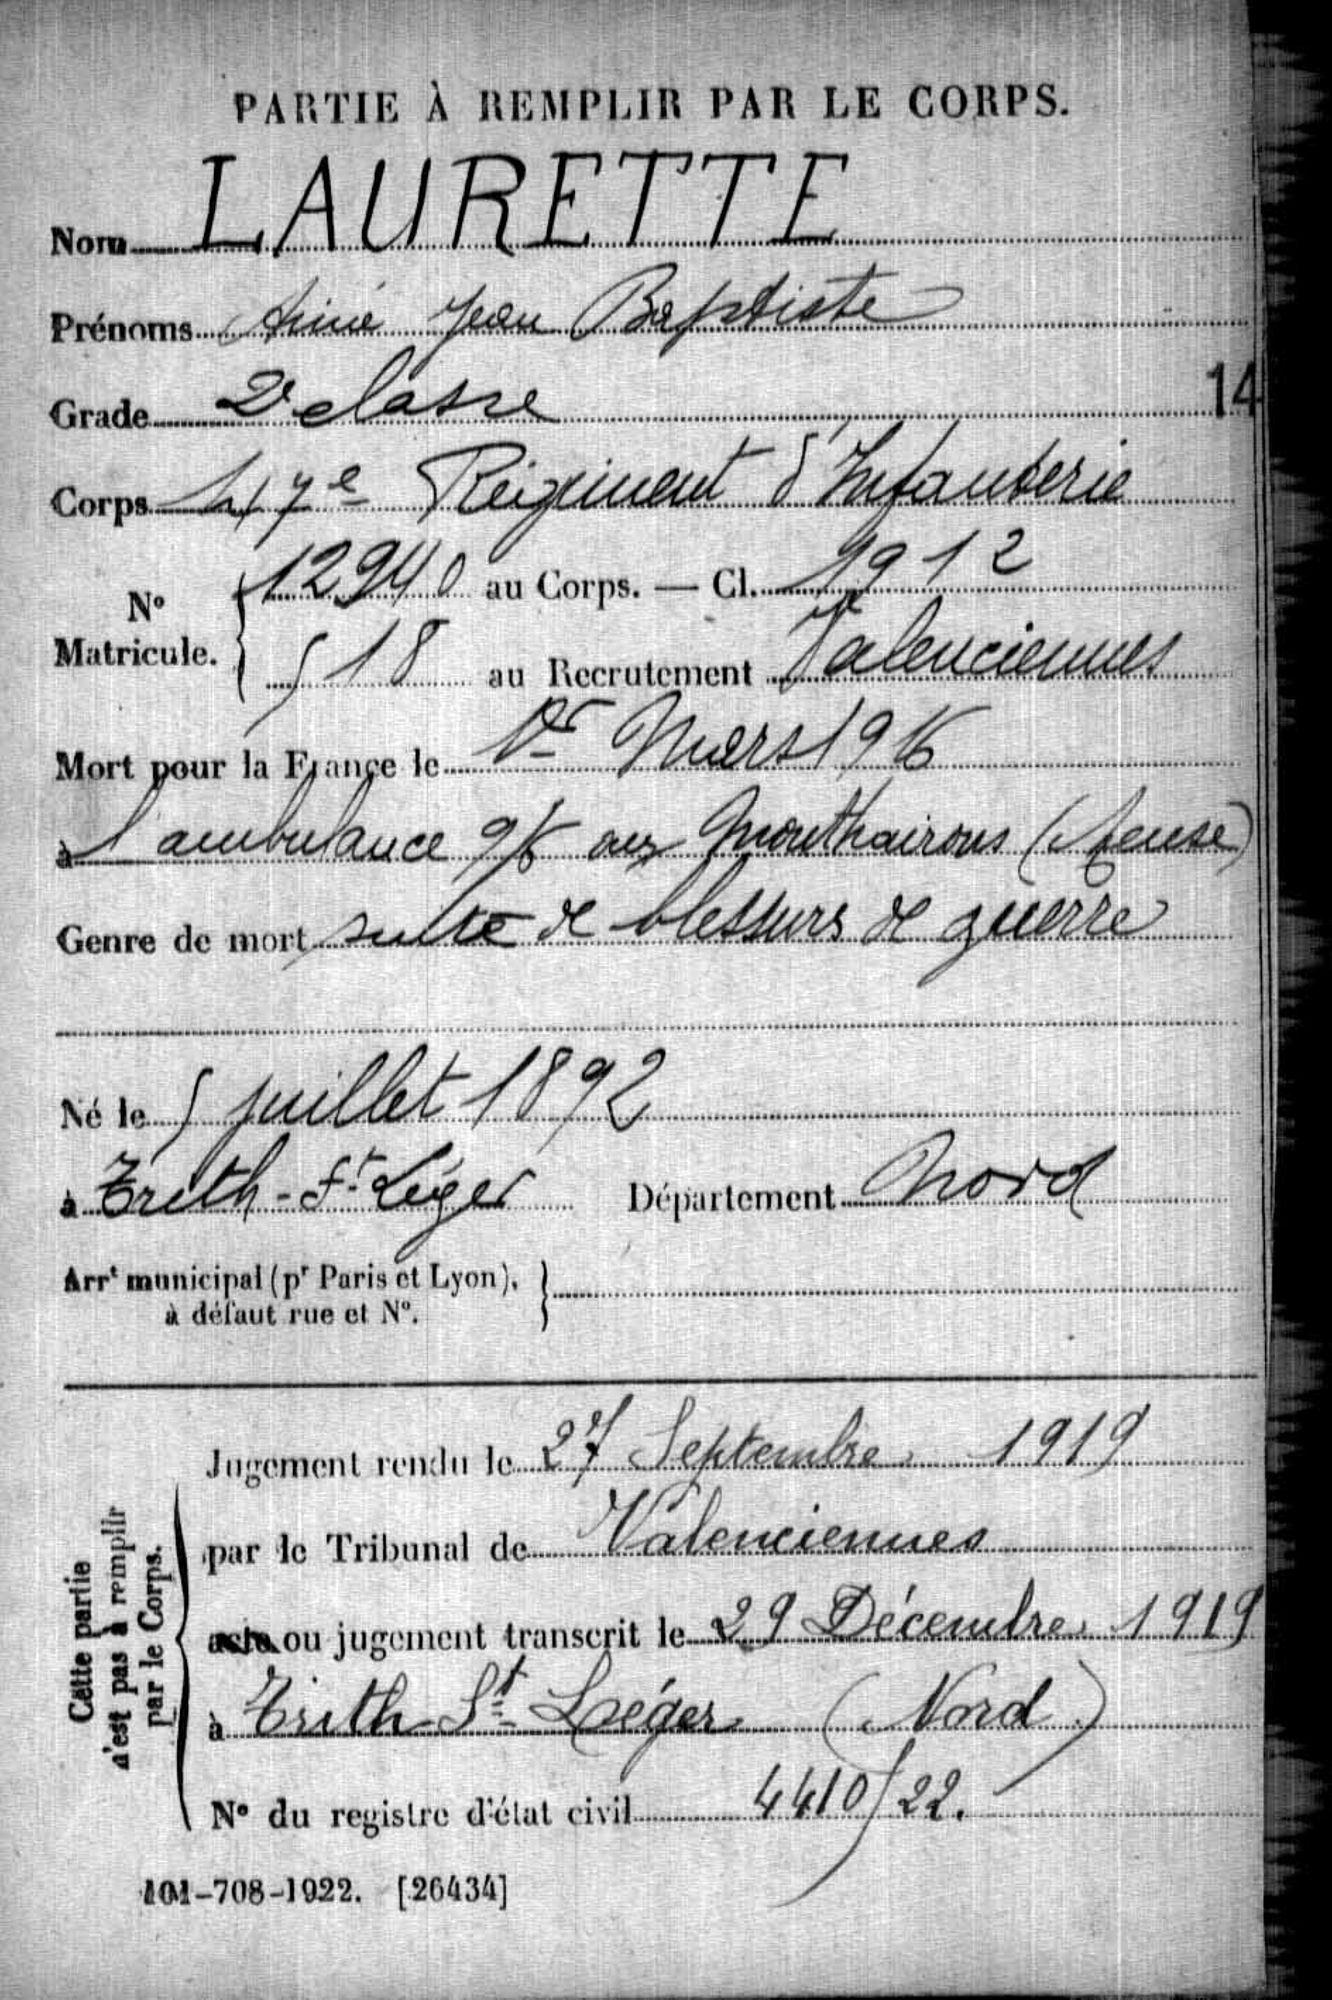 PARTIE À REMPLIR PAR LE CORPS.
Nom LAURETTE
Prénoms Aimé Jean Baptiste
Grade 2e classe
14
Corps 147e Régiment d'Infanterie
No Matricule. 12940 au Corps. — Cl. 1912
518 au Recrutement Valenciennes
Mort pour la France le 1er Mars 1916
à l'ambulance 9/6 aux Monthairons (Meuse)
Genre de mort suite de blessures de guerre
Né le 5 juillet 1892
à Trith-St Léger Département Nord
Arrt municipal (pr Paris et Lyon), à défaut rue et No.
Cette partie n'est pas à remplir par le Corps.
Jugement rendu le 27 Septembre 1919
par le Tribunal de Valenciennes
acte ou jugement transcrit le 29 Décembre 1919
à Trith-St-Léger (Nord)
No du registre d'état civil 4410/22.
101-708-1922. [26434]